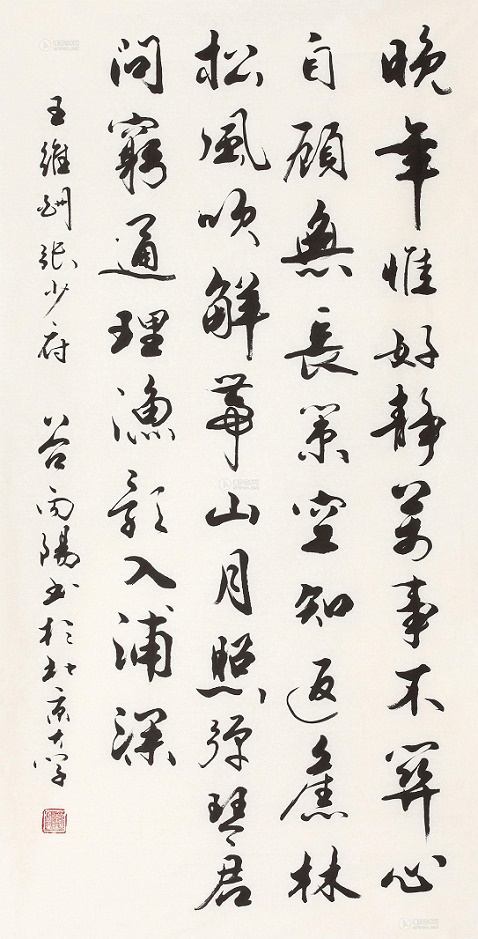 晚年惟好靜萬事不關心
自顧無長策空知返舊林
松風吹解帶山月照彈琴君
問窮通理漁歌入浦深
王維酬張少府 谷向陽书於北京大学